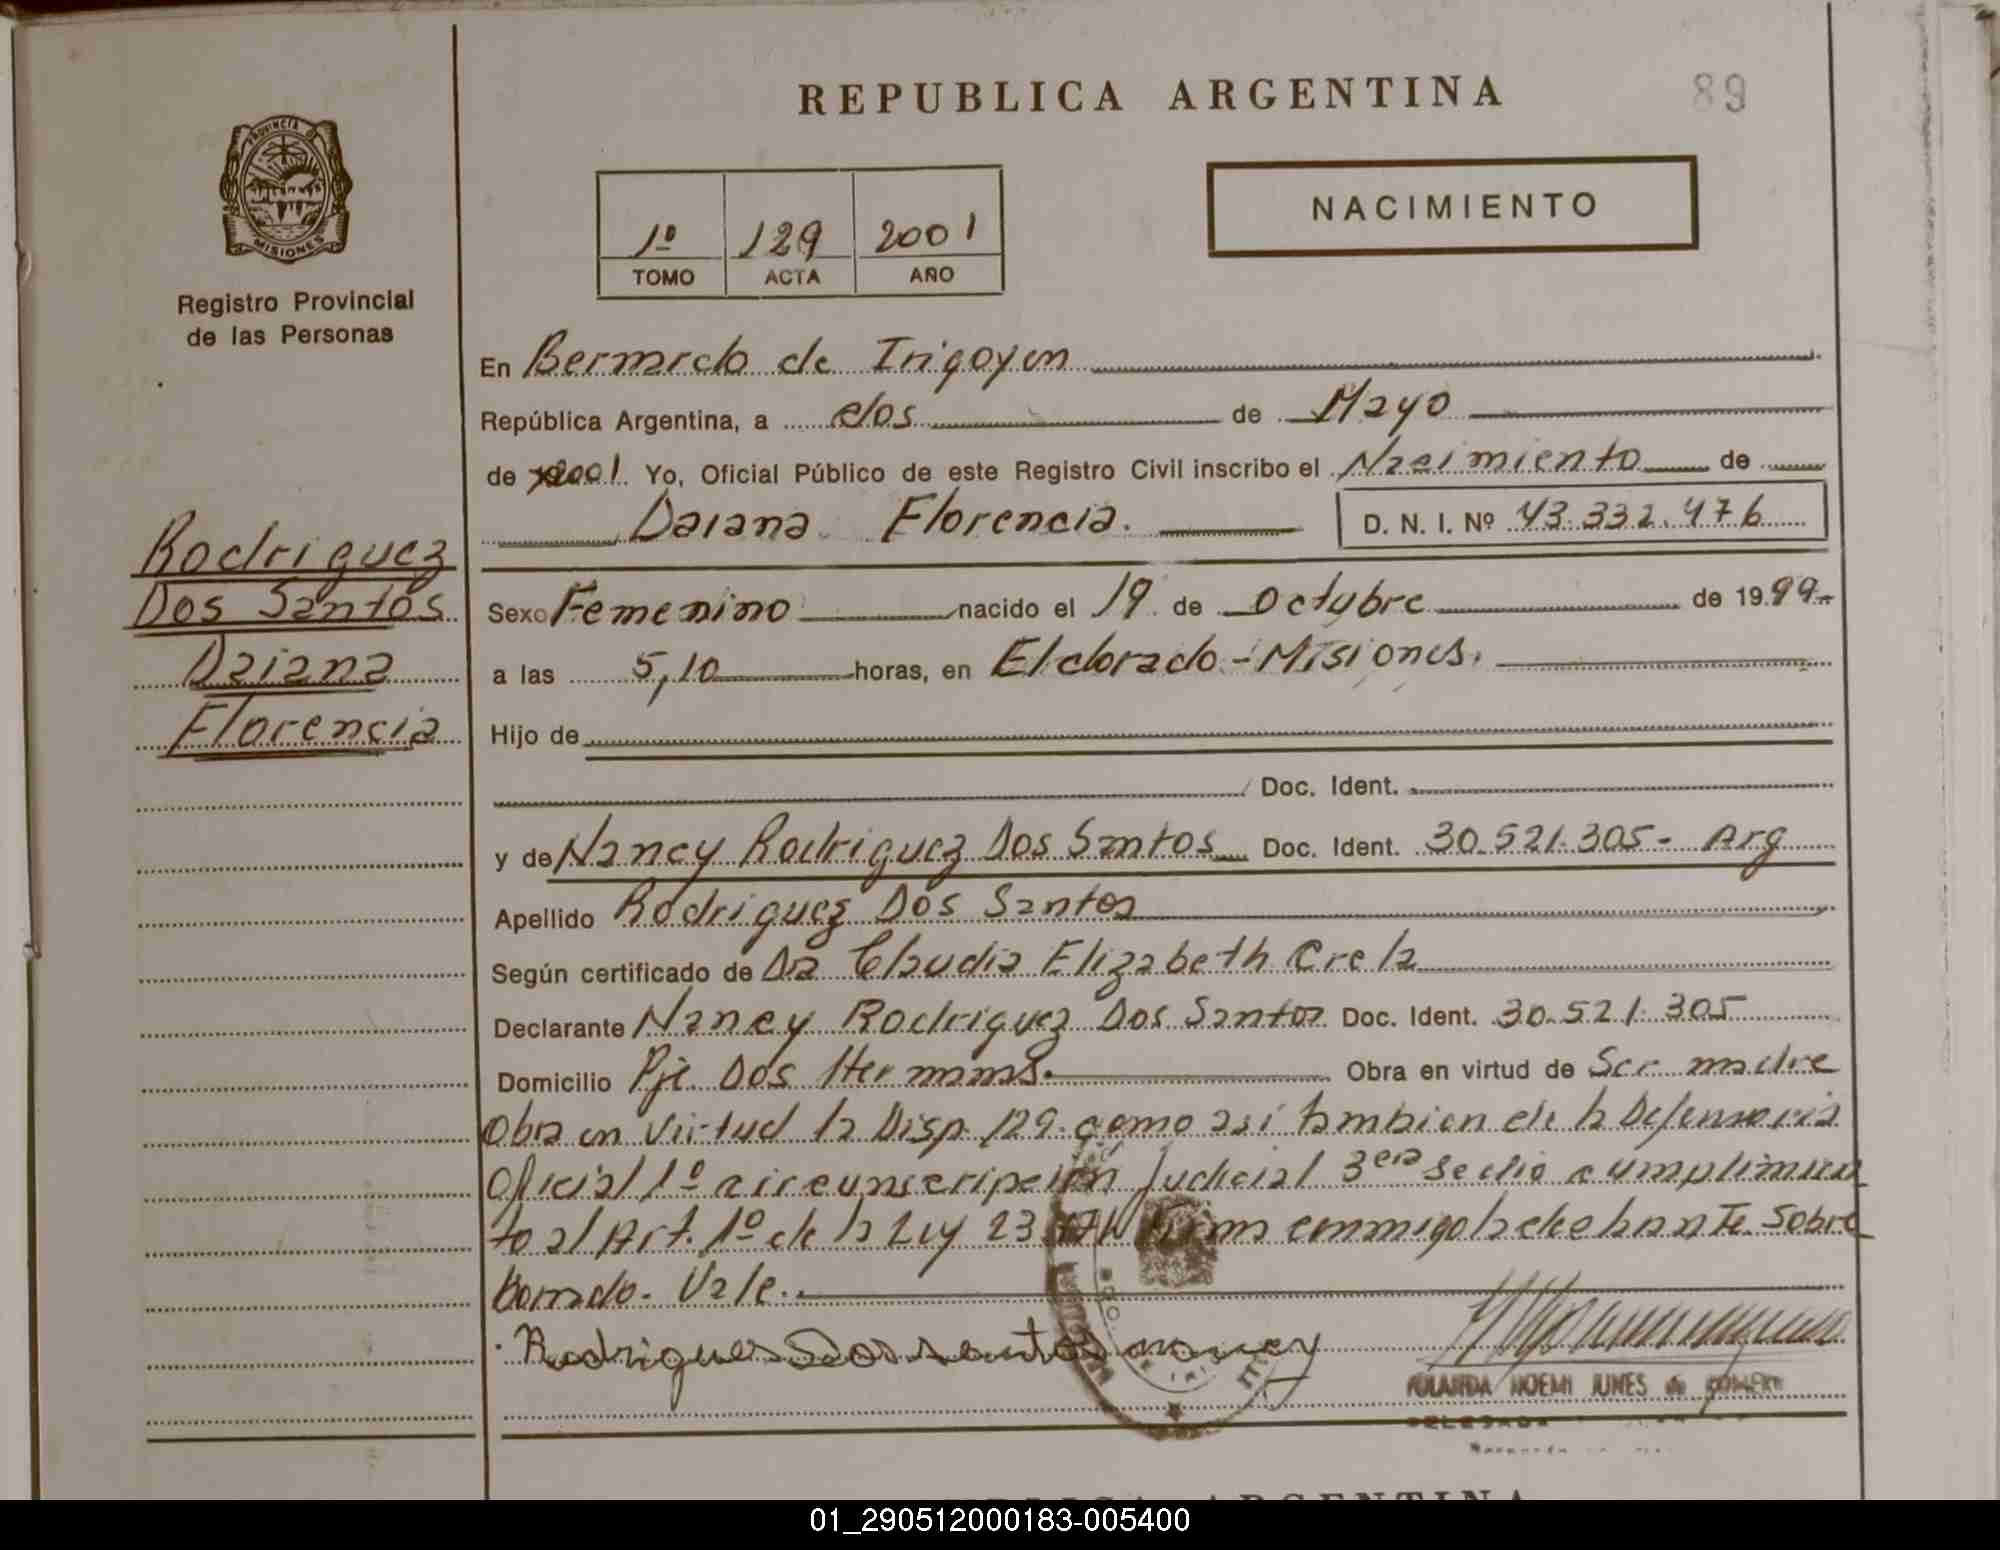 REPUBLICA ARGENTINA
89
PROVINCIA D
MISIONES
Registro Provincial
de las Personas
1º 129 2001
TOMO ACTA AÑO
NACIMIENTO
En Bernardo de Irigoyen
República Argentina, a dos de Mayo
de 2001. Yo, Oficial Público de este Registro Civil inscribo el Nacimiento de
Daiana Florencia. D. N. I. Nº 43.332.476
Rodriguez
Dos Santos
Daiana
Florencia
Sexo Femenino nacido el 19 de Octubre de 1999.-
a las 5,10 horas, en Eldorado-Misiones.
Hijo de
Doc. Ident.
y de Nancy Rodriguez Dos Santos Doc. Ident. 30.521.305- Arg
Apellido Rodriguez Dos Santos
Según certificado de Dra Claudia Elizabeth Crela
Declarante Nancy Rodriguez Dos Santos Doc. Ident. 30.521.305
Domicilio Pje Dos Hermanas. Obra en virtud de Ser madre
Obra en virtud la Disp 129. como asi tambien de la Defensoria
Oficial 1º circunscripcion Judicial 3era se dio cumplimien
to al Art. 1º de la Ley 23 Firma conmigo la declarante. Sobre
Borrado. Vale.
Rodrigues Dos santos nancy
YOLANDA NOEMI JUNES de
DELEGADA
REPUBLICA ARGENTINA
01_290512000183-005400